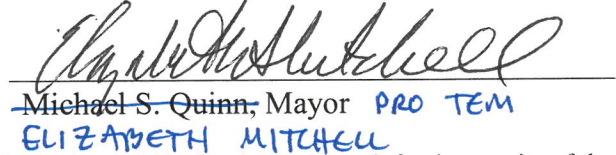 Elizabeth Mitchell
Michael S. Quinn, Mayor PRO TEM
ELIZABETH MITCHELL